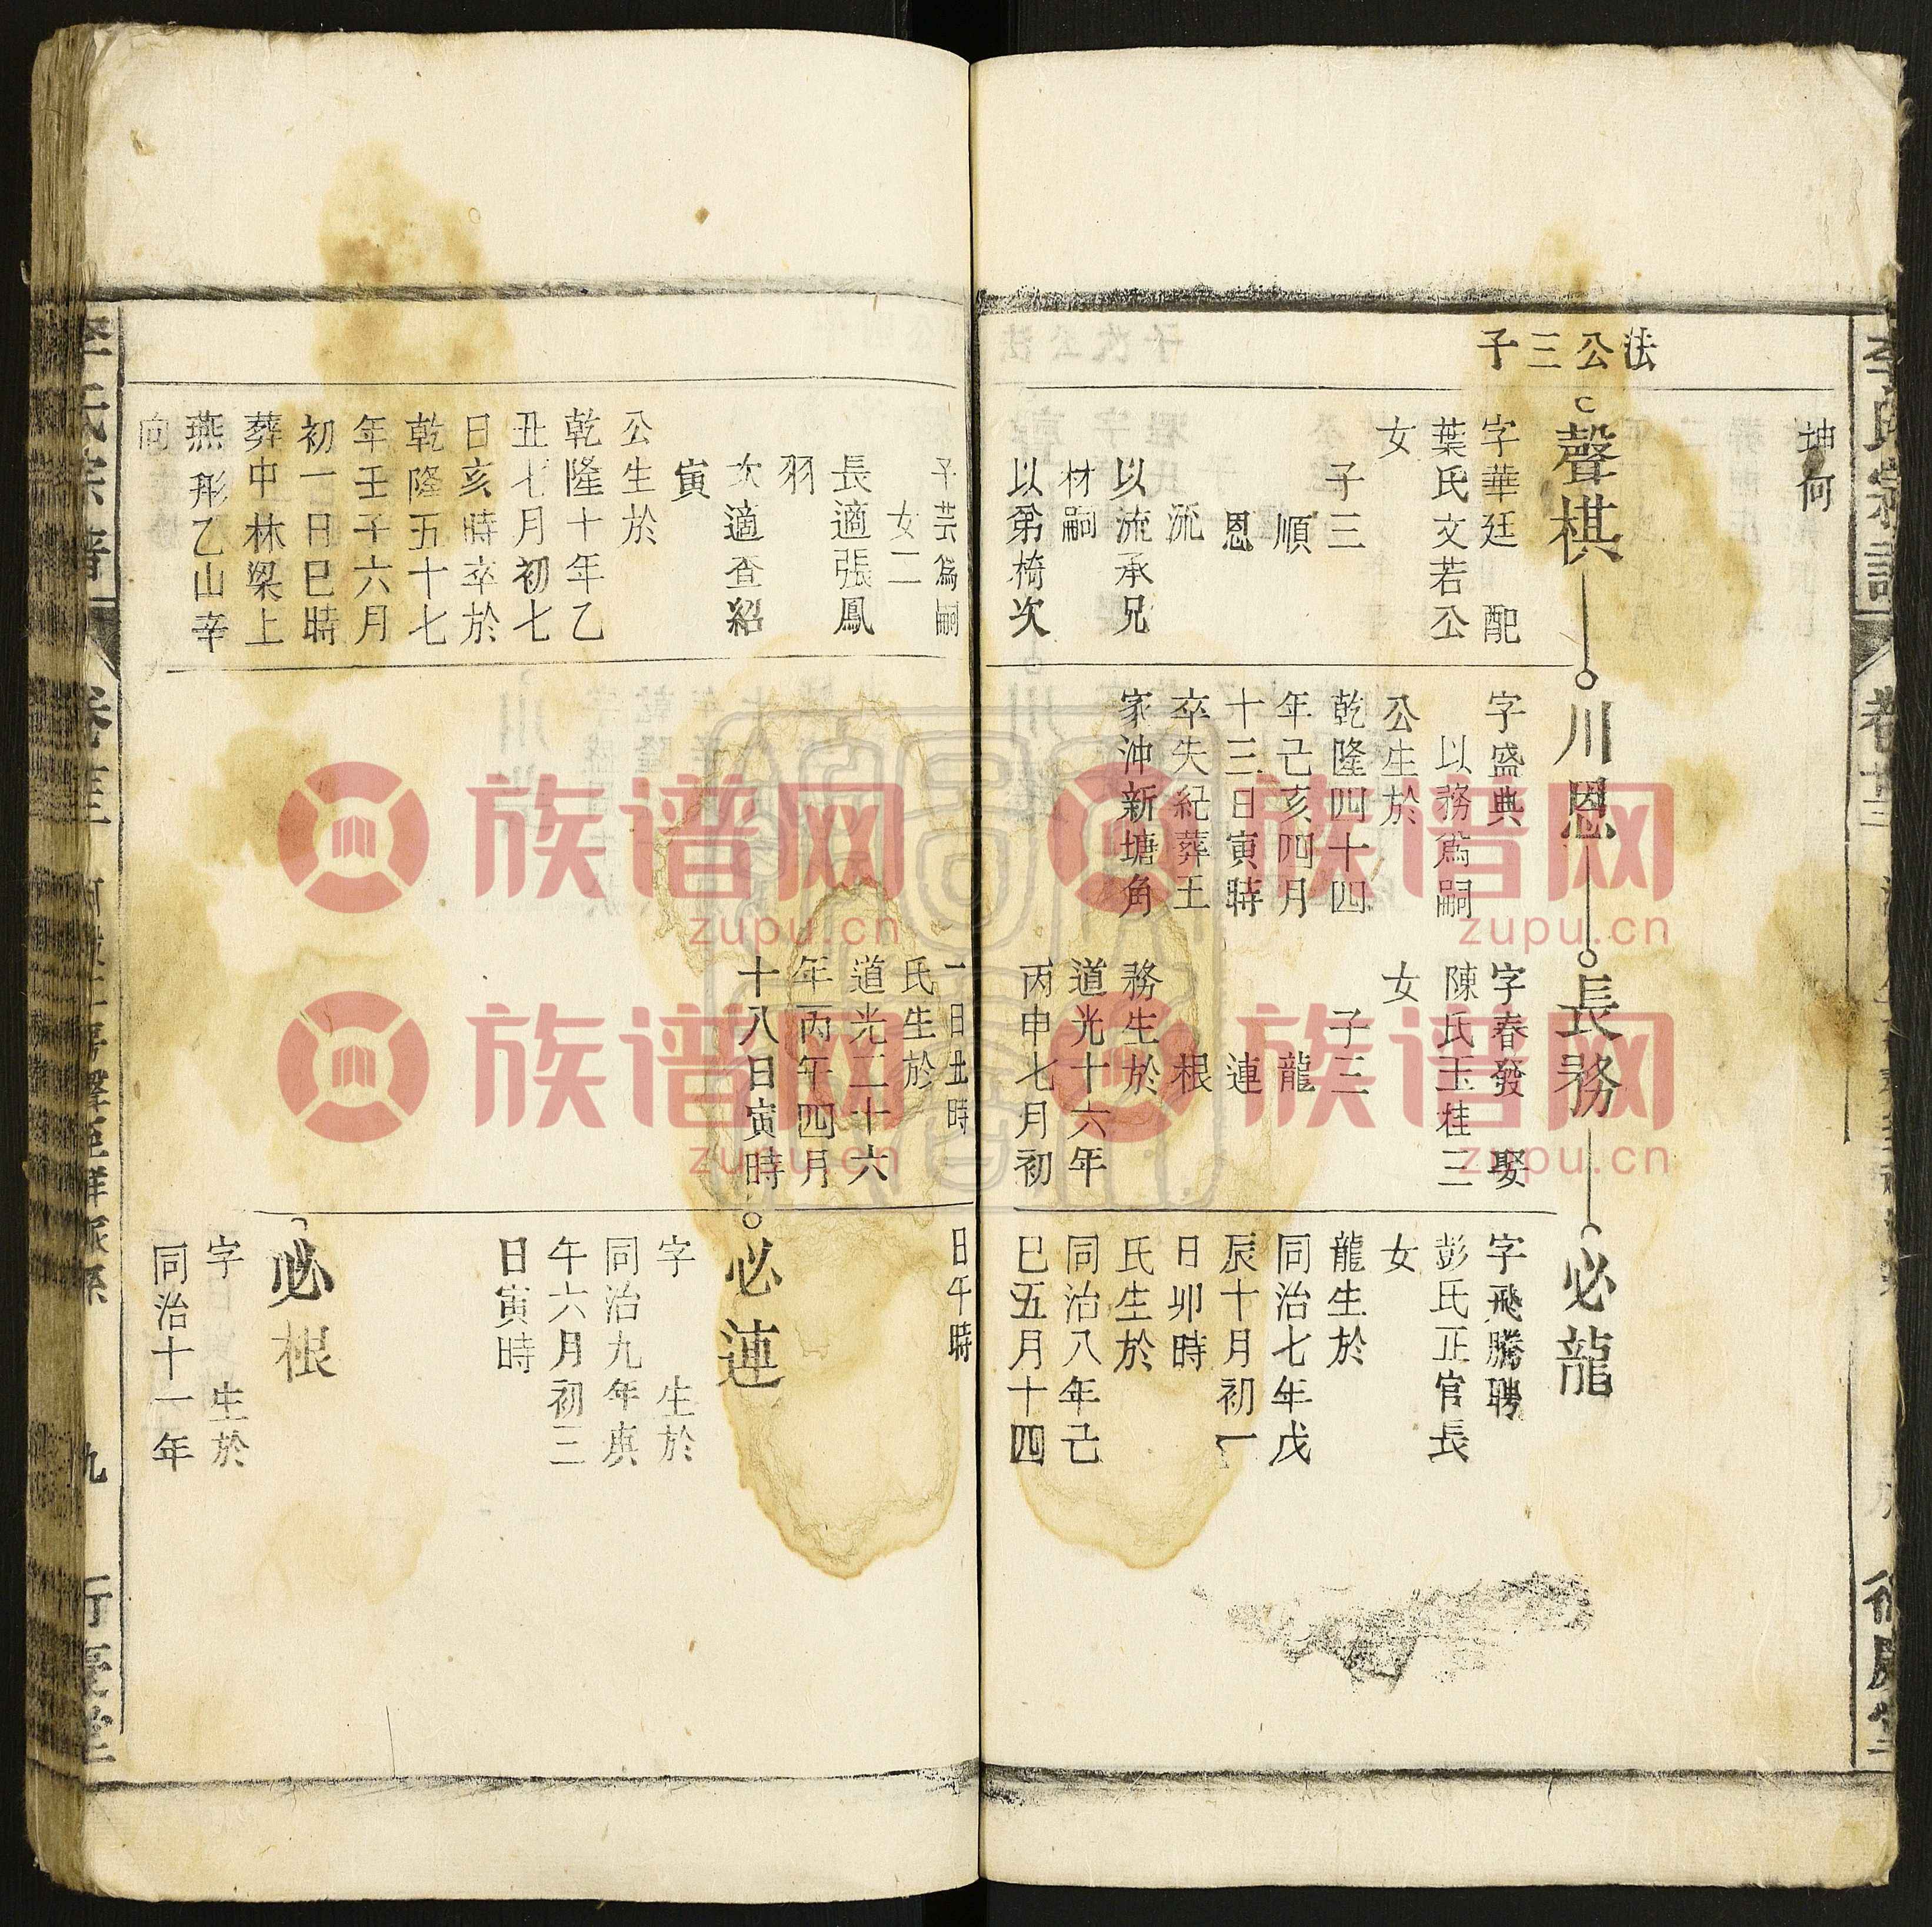 法公三子
坤向
聲棋
字華廷 配
葉氏文若公
女
子三
順
恩
流
以流承兄
材嗣
以弟椅次
子芸為嗣
女二
長適張鳳
羽
次適查紹
寅
公生於
乾隆十年乙
丑七月初七
日亥時卒於
乾隆五十七
年壬子六月
初一日巳時
葬中林梁上
燕形乙山辛
向
川恩
字盛典
以務為嗣
公生於
乾隆四十四
年己亥四月
十三日寅時
卒失紀葬王
家沖新塘角
長務
字春發 娶
陳氏玉桂三
女
子三
龍
連
根
務生於
道光十六年
丙申七月初
一日丑時
氏生於
道光二十六
年丙午四月
十八日寅時
必龍
字飛騰聘
彭氏正官長
女
龍生於
同治七年戊
辰十月初一
日卯時
氏生於
同治八年己
巳五月十四
日午時
必連
字 生於
同治九年庚
午六月初三
日寅時
必根
字 生於
同治十一年
李氏宗譜
九
行慶堂
族谱网
zupu.cn
族谱网
zupu.cn
族谱网
zupu.cn
族谱网
zupu.cn